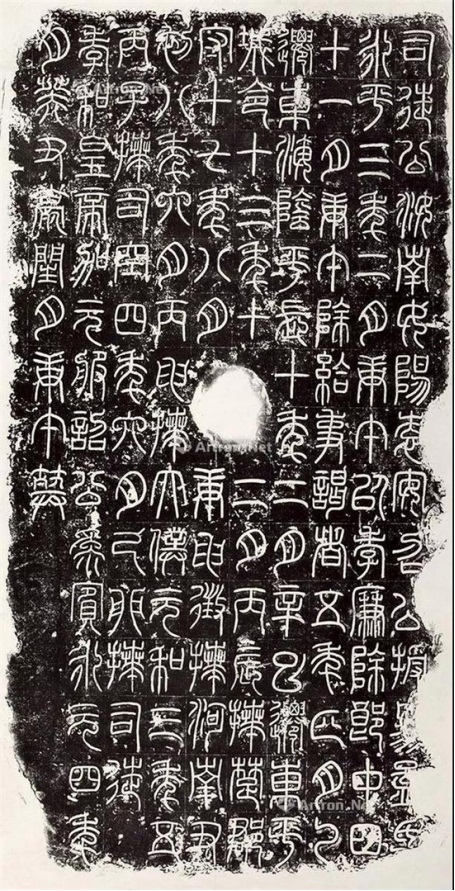 司徒公汝南女陽袁安召公授易孟氏
永平三年二月庚午以孝廉除郎中四
十一月庚午除給事謁者五年四月乙
遷東海陰平長十年二月辛巳遷東平
城令十三年十二月丙辰拜楚郡
守十七年八月庚申徵拜河南尹
初八年六月丙申拜太僕元和三年五
丙子拜司空四年六月己卯拜司徒
孝和皇帝加元服詔公為賓永元四年
月癸丑薨閏月庚午葬
Artron.Net
Artron.Net
Artron.Net